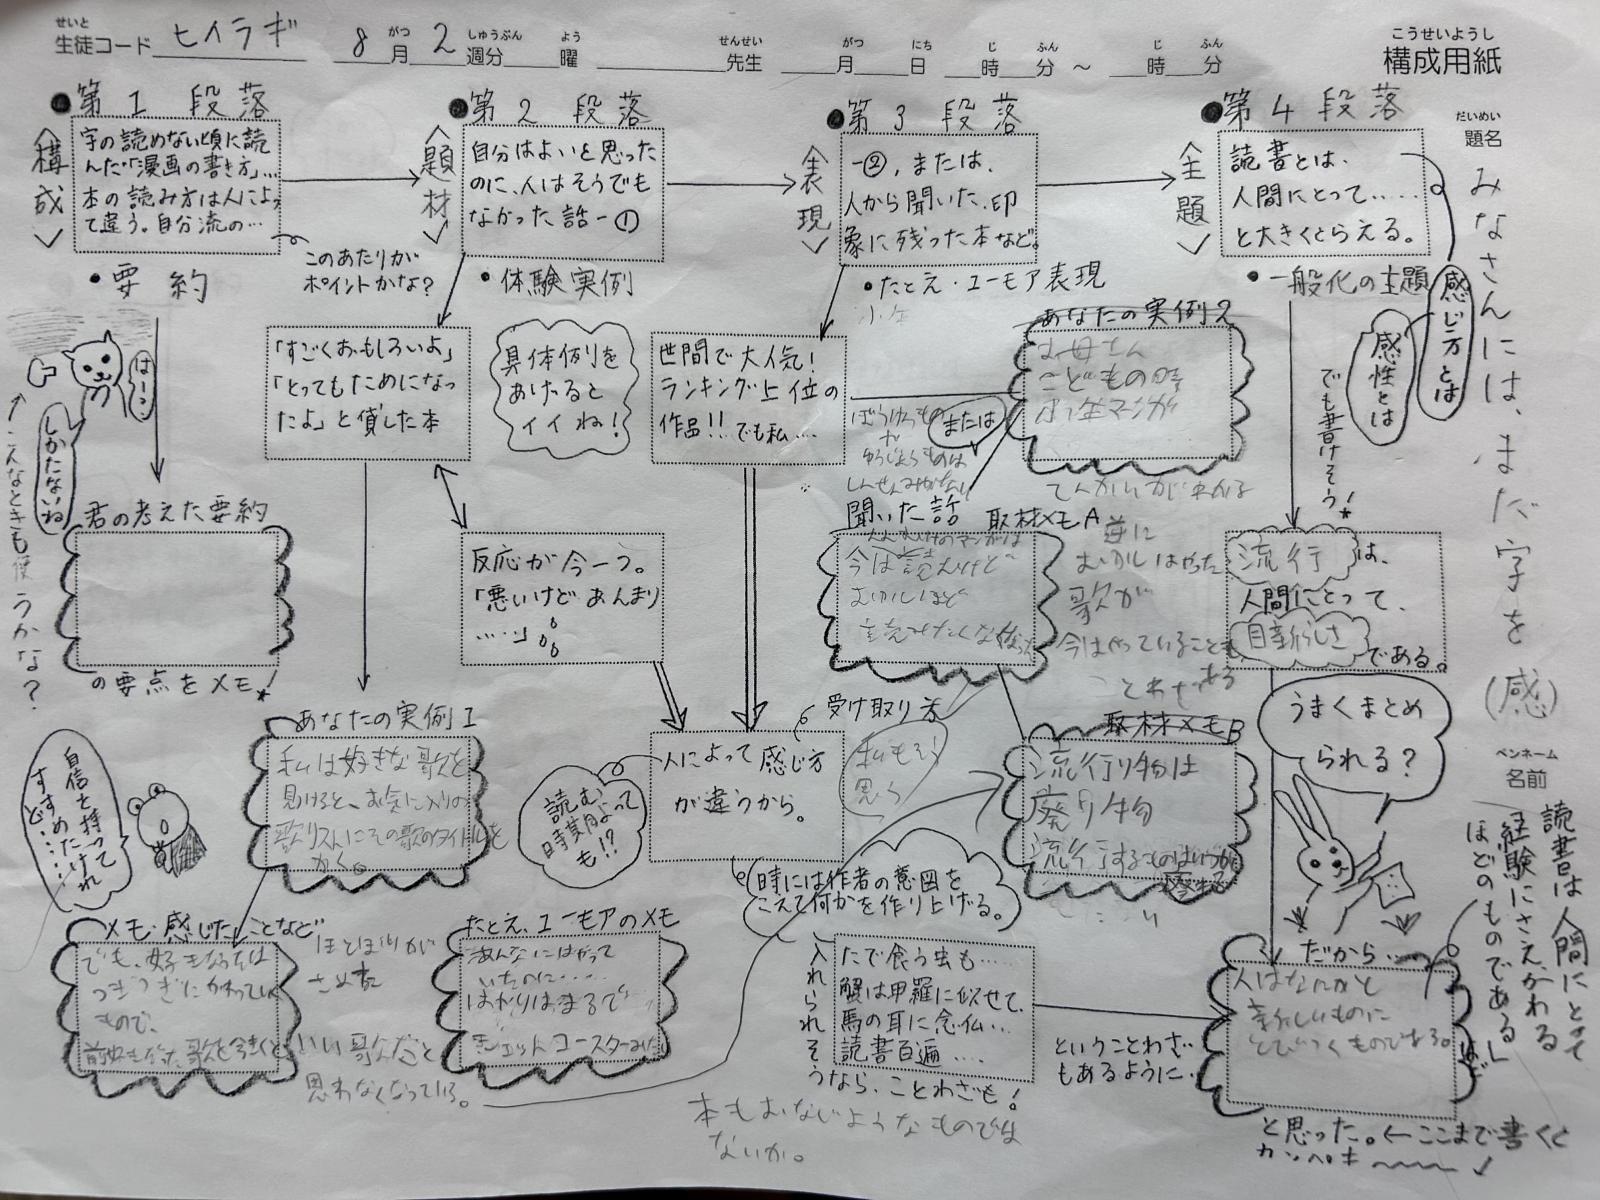 せいと
生徒コード ヒイラギ
8 がつ 月 2 しゅうぶん 週分 よう 曜
せんせい 先生
がつ 月 にち 日 じ 時 ふん 分 ～ じ 時 ふん 分
こうせいようし
構成用紙
だいめい
題名
みなさんには、まだ字を(感)
ペンネーム
名前
読書は人間にとって
経験にさえかわる
ほどのものである
●第1段落
<構成>
字の読めない頃に読
んだ「漫画の書き方」…
本の読み方は人によっ
て違う。自分流の…
このあたりが
ポイントかな?
・要約
はーン
しかたないね
こんなときも使うかな?
君の考えた要約
の要点をメモ!
●第2段落
<題材>
自分はよいと思った
のに、人はそうでも
なかった話-①
・体験実例
「すごくおもしろいよ」
「とってもためになっ
たよ」と貸した本
具体例を
あげると
イイね!
反応が今一つ。
「悪いけど あんまり
……」
あなたの実例1
私は好きな歌を
見けると、お気に入りの
歌リストにその歌のタイトルを
かく。
自信を持って
すすめたけれ
ど……
メモ・感じたことなど
でも、好きなうたは
つぎつぎにかわっていく
もので、
歌を今きくと いい歌だと
思わなくなっている。
ほとぼりが
さめた
●第3段落
<表現>
-②、または、
人から聞いた、印
象に残った本など。
・たとえ・ユーモア表現
世間で大人気!
ランキング上位の
作品!! でも私…
または
あなたの実例2
お母さん
こどもの時
少年マンガ
聞いた話
取材メモA
今は読むけど
むかしはやった
歌が
今はやっていることも
ある
ことわざ
受け取り方
人によって感じ方
が違うから。
読む
時期によって
も!?
私もそう
思う
時には作者の意図を
こえて何かを作り上げる。
取材メモB
流行り物は
廃り物
流行するものはいつか
廃れる
たとえ、ユーモアのメモ
あんなにはやって
いたのに……
はやりはまるで
ジェットコースターみたい
入れられそうなら、ことわざも!
たで食う虫も……
蟹は甲羅に似せて、
馬の耳に念仏…
読書百遍 ….
ということわざ
もあるように…
本もおなじようなものでは
ないか。
●第4段落
<主題>
読書とは、
人間にとって……
と大きくとらえる。
感じ方とは
感性とは
・一般化の主題
でも書けそう!
流行は、
人間にとって、
目新らしさ
である。
うまくまとめ
られる?
だから…
人はなにかと
新しいものに
とびつくものである。
と思った。←ここまで書くと
カンペキ